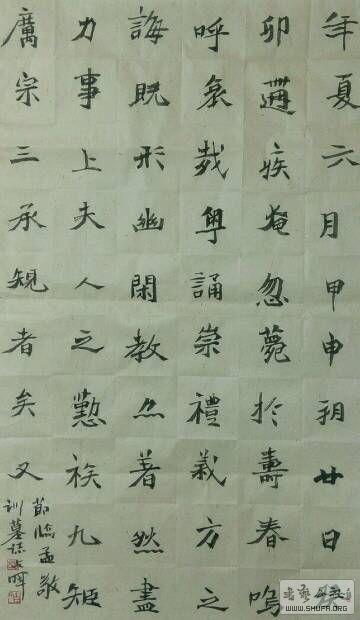 年夏六月甲申朔廿日
卯遘疾奄忽薨於壽春嗚
呼哀哉粵誦崇禮義方之
誨既形幽閑教亦著然盡
力事上夫人之懃九姬
宗三承規者矣又
節臨孟敬
訓墓誌
WWW.SHUFA.ORG